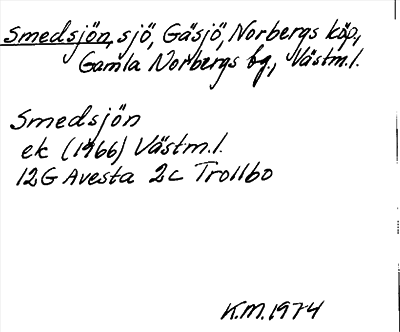 Smedsjön, sjö, Gäsjö, Norbergs köp,
Gamla Norbergs bg, Västm.l.
Smedsjön
ek (1966) Västm.l.
12G Avesta 2c Trollbo
K.M. 1974